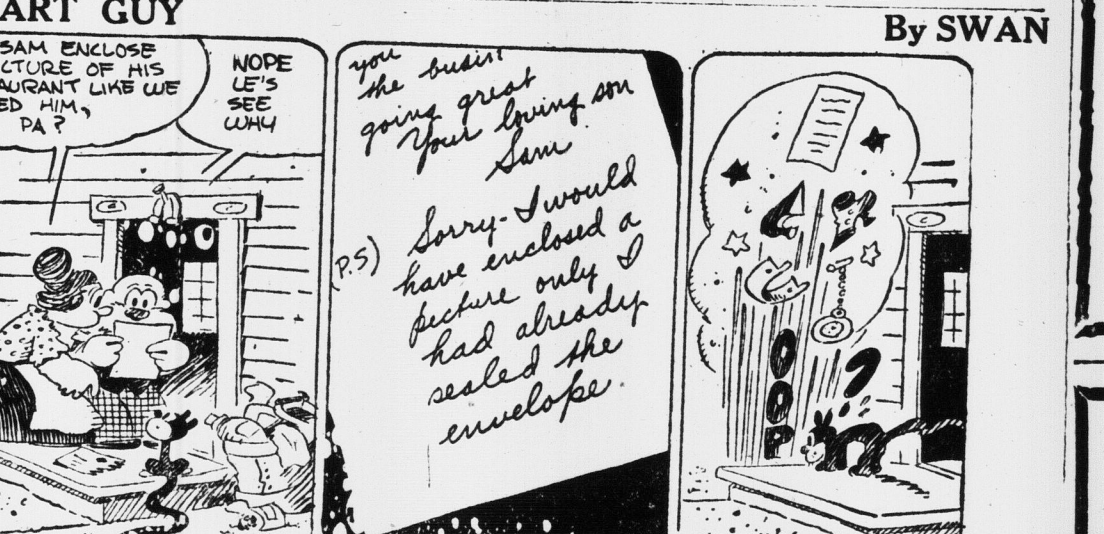 ART GUY
By SWAN
SAM ENCLOSE
CTURE OF HIS
AURANT LIKE WE
ED HIM,
PA?
NOPE
LE'S
SEE
WHY
you
the busin
going great
Your loving son
Sam
P.S) Sorry - I would
have enclosed a
picture only I
had already
sealed the
envelope.
OOOP
?